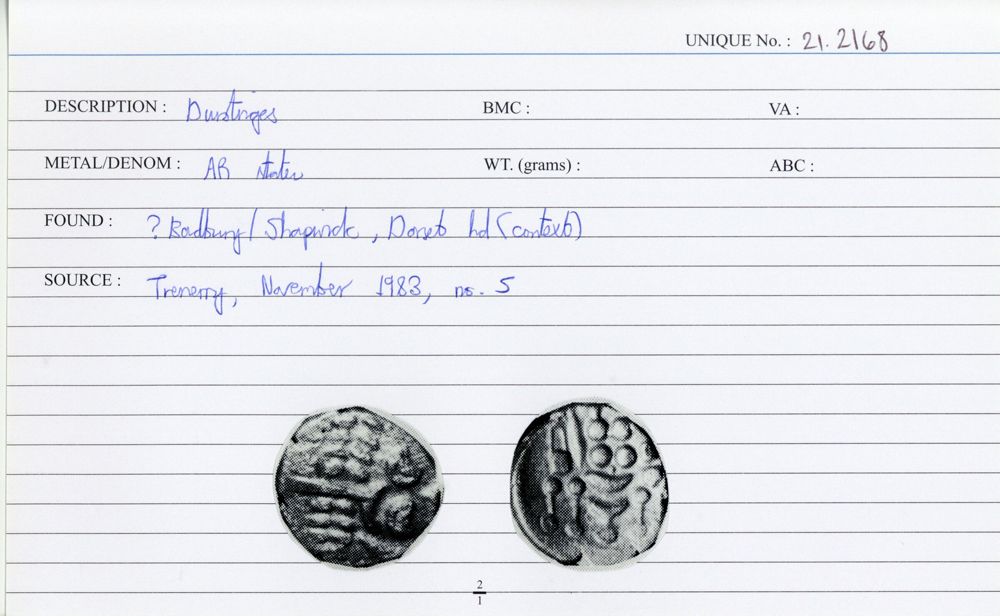 UNIQUE No. : 21. 2168
DESCRIPTION : Durotriges BMC : VA :
METAL/DENOM : AR stater WT. (grams) : ABC :
FOUND : ? Badbury / Shapwick, Dorset hd (context)
SOURCE : Trenerry, November 1983, no. 5
2
1